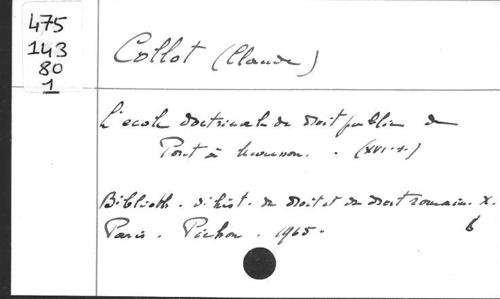 475
143
80
1
Collot (Claude)
L'ecole doctrinale de droit public de
Pont à Mousson. (XVI s.)
Biblioth. d'hist. du droit et de droit romain. X.
Paris. Pichon. 1965. 6